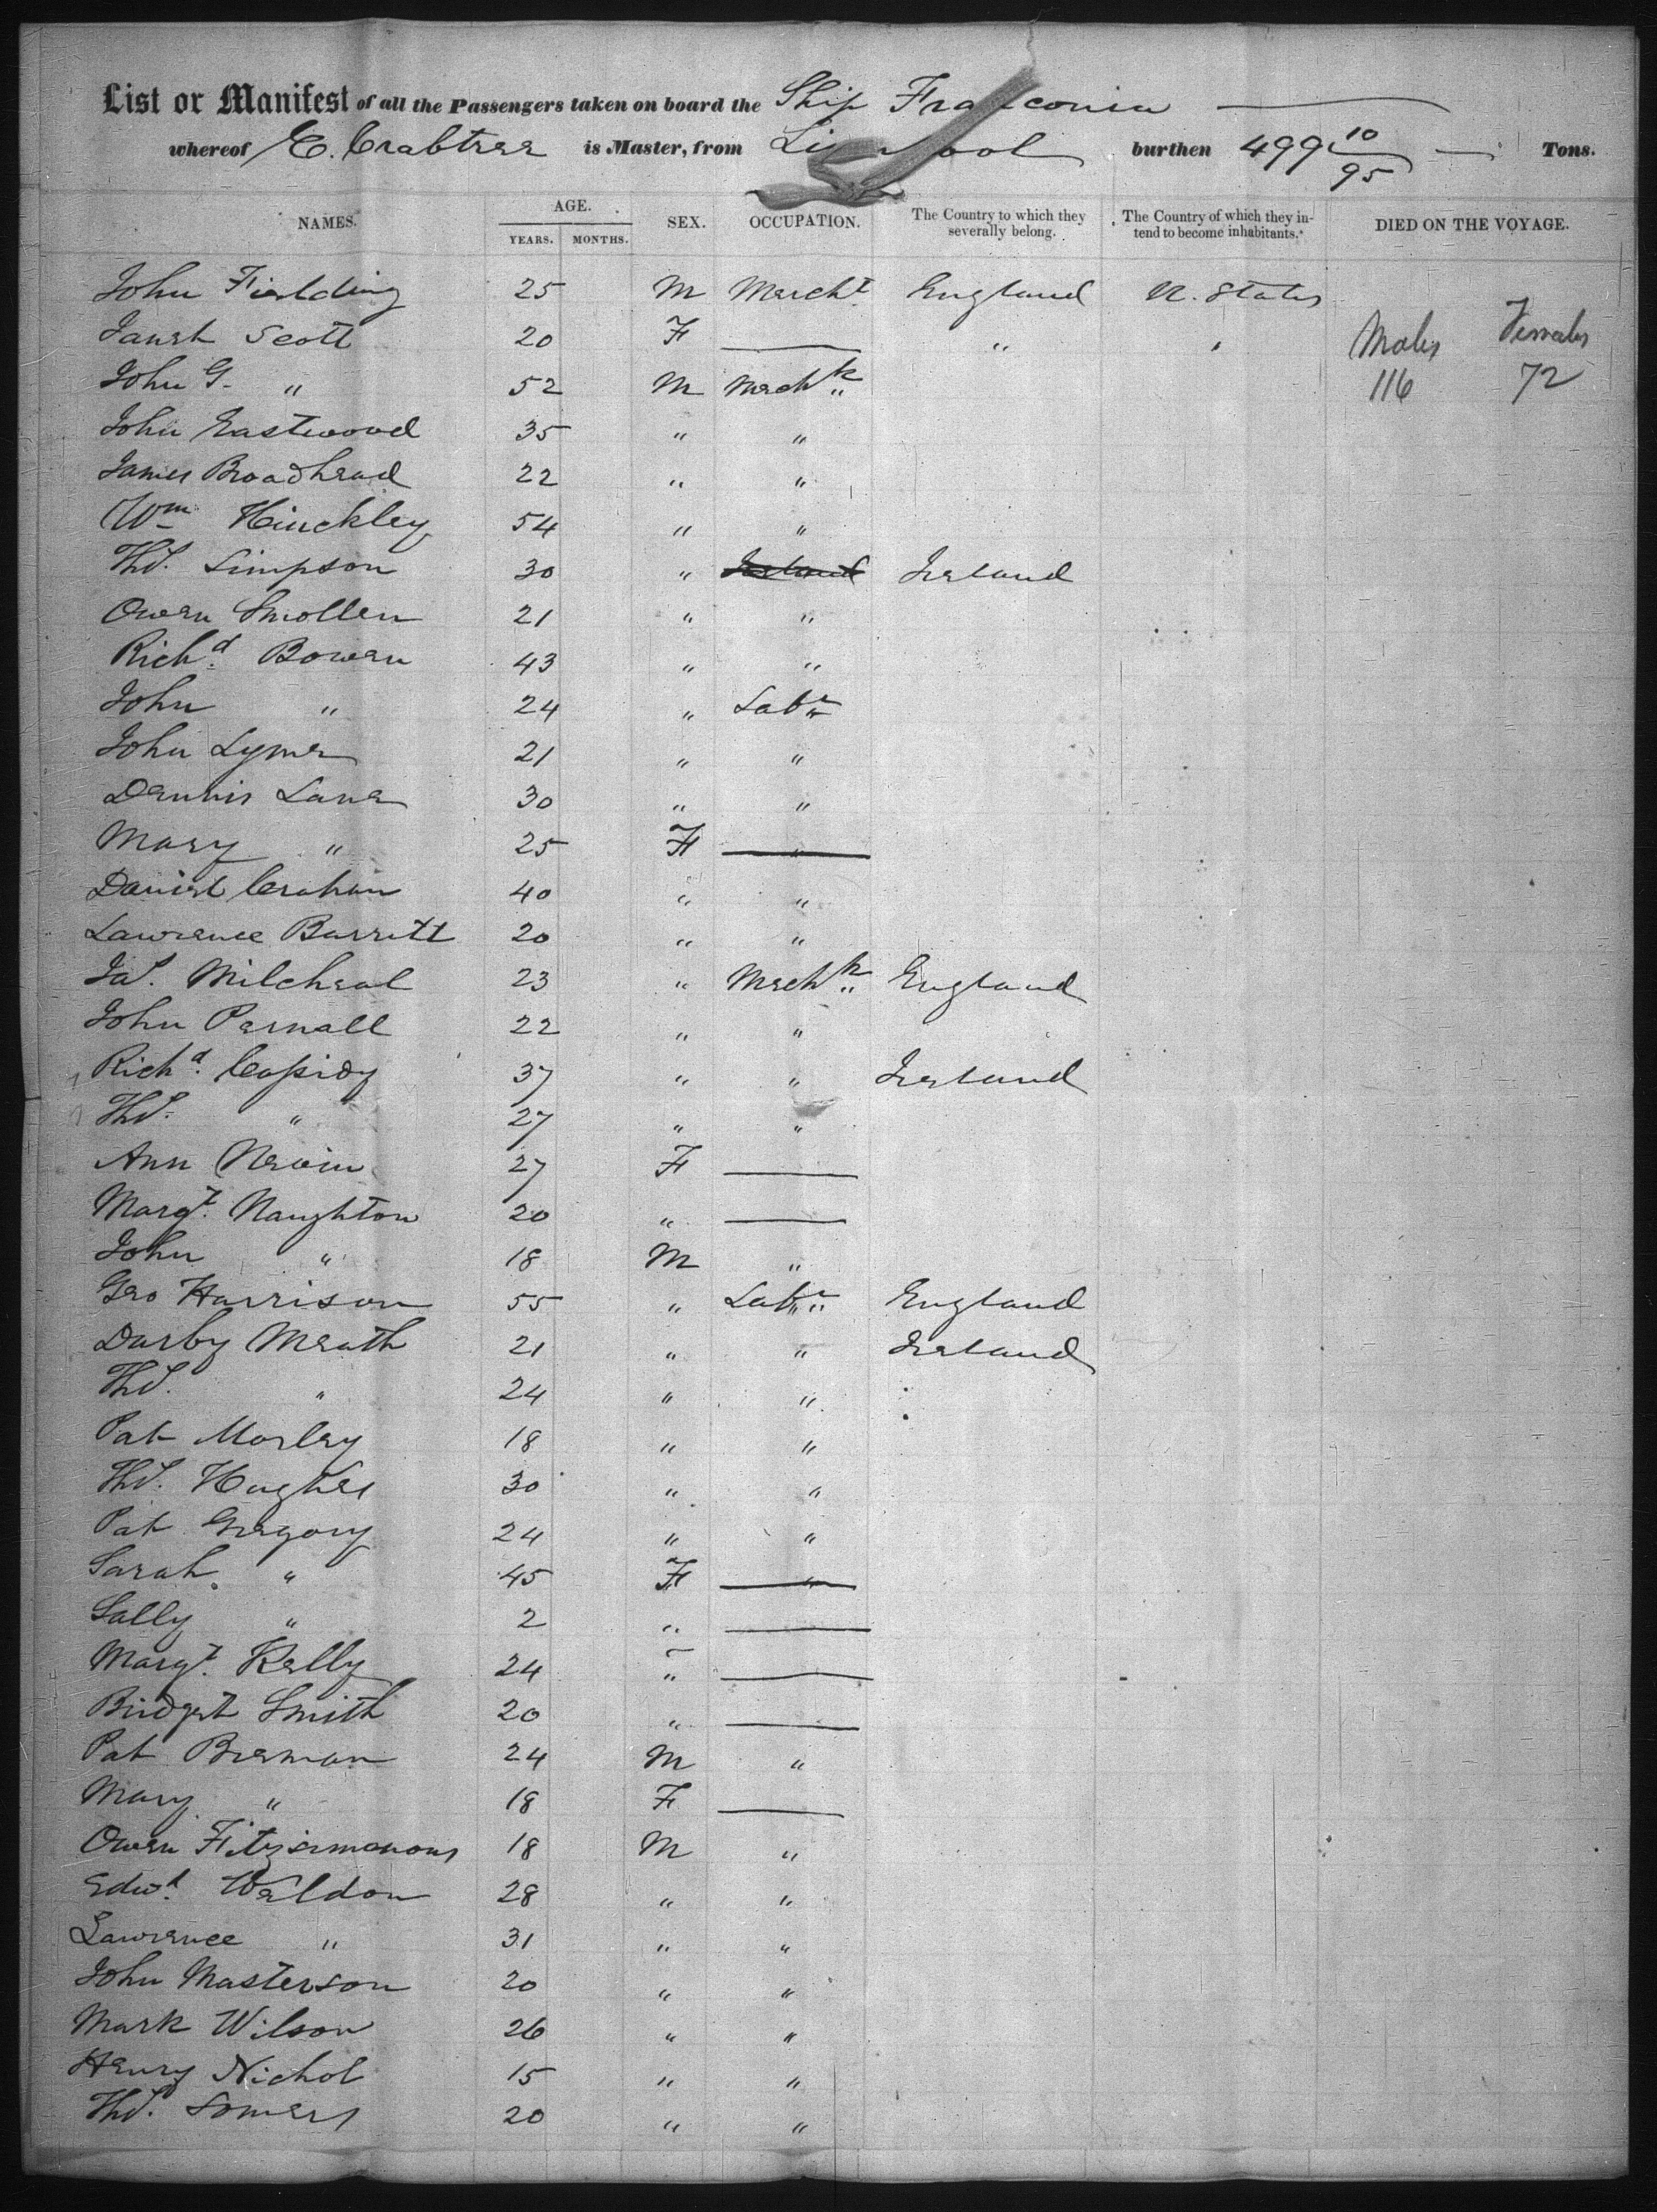 List or Manifest of all the Passengers taken on board the Ship Franconia
whereof E. Crabtree is Master, from Liverpool burthen 499 10/95 Tons.
NAMES. AGE. YEARS. MONTHS. SEX. OCCUPATION. The Country to which they severally belong. The Country of which they intend to become inhabitants. DIED ON THE VOYAGE.
John Fielding 25 M Mercht England U. States
Janet Scott 20 F — " " Males Females
John G. " 52 M Mechk " 116 72
John Eastwood 35 " "
James Broadhead 22 " "
Wm Hinckley 54 " "
Thos. Simpson 30 " Ireland Ireland
Owen Smollen 21 " "
Richd. Bowen 43 " "
John " 24 " Labr "
John Lymer 21 " "
Dennis Lane 30 " "
Mary " 25 F "
Daniel Crahan 40 " "
Lawrence Barrett 20 " "
Jas. Milcheal 23 " Mechk " England
John Pernall 22 " "
Richd. Cassidy 37 " " Ireland
Thos. " 27 " "
Ann Nevin 27 F —
Margt. Naughton 20 " —
John " 18 M "
Geo Harrison 55 " Labr " England
Darby Meath 21 " " Ireland
Thos. " 24 " "
Pat Morley 18 " "
Thos. Hughes 30 " "
Pat Gregory 24 " "
Sarah " 45 F "
Sally " 2 " —
Margt. Kelly 24 " —
Bridget Smith 20 " —
Pat Breman 24 M "
Mary " 18 F —
Owen Fitzsimmons 18 M "
Edwd. Weldon 28 " "
Lawrence " 31 " "
John Masterson 20 " "
Mark Wilson 26 " "
Henry Nichol 15 " "
Thos. Somers 20 " "